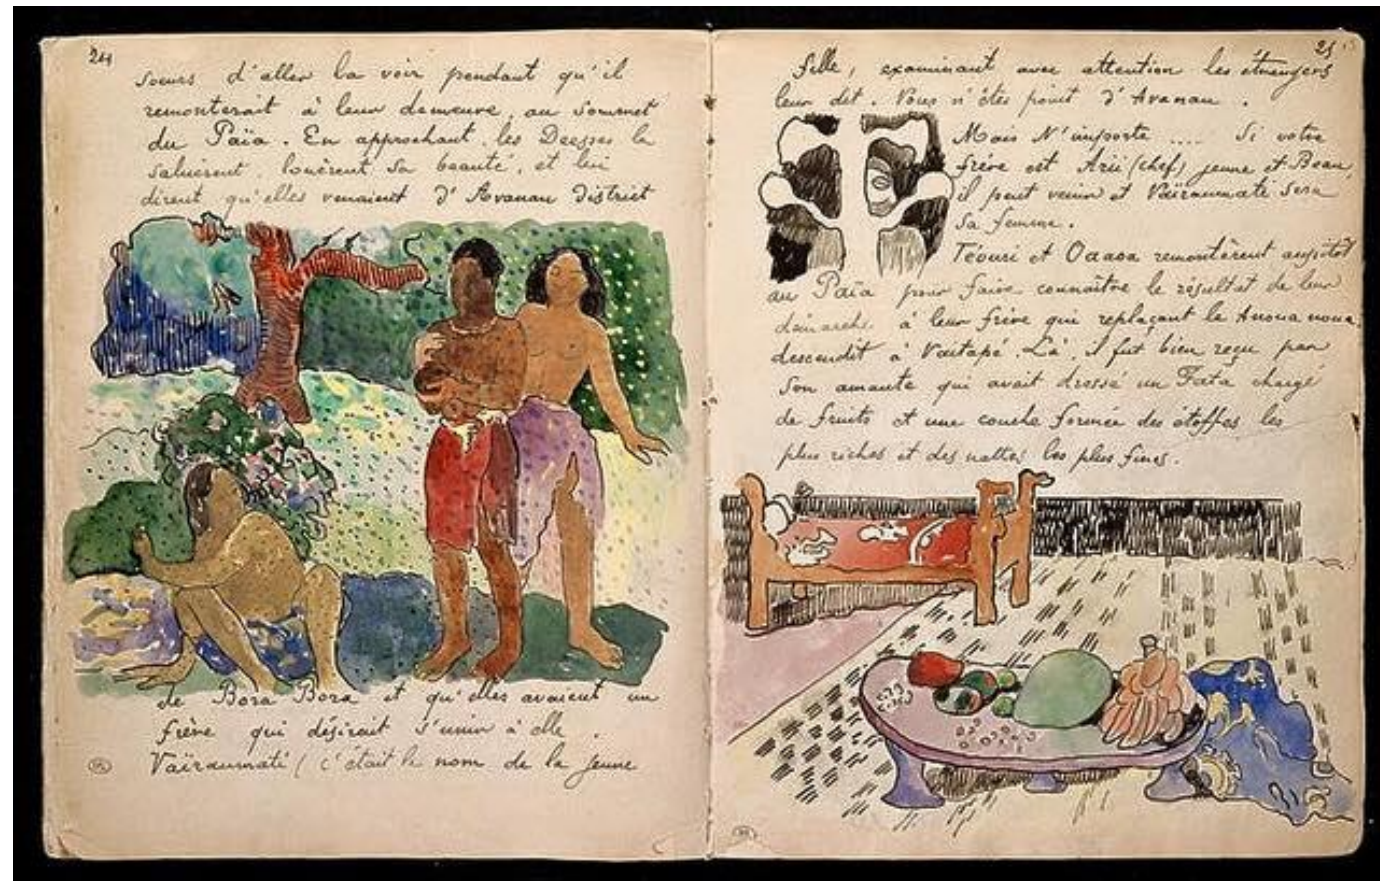 24
soeurs d'aller la voir pendant qu'il
remonterait à leur demeure, au sommet
du Païa. En approchant, les Déesses la
saluèrent, louèrent sa beauté, et lui
dirent qu'elles venaient d'Avanau district
de Bora Bora et qu'elles avaient un
frère qui désirait s'unir à elle.
Vaïraumati (c'était le nom de la jeune
25
fille, examinant avec attention les étrangers
leur dit. Vous n'êtes point d'Avanau.
Mais N'importe .... Si votre
frère est Arii (chef) jeune et Beau,
il peut venir et Vaïraumate sera
sa femme.
Téouri et Oaaoa remontèrent aussitôt
au Païa pour faire connaître le résultat de leur
démarche à leur frère qui replaçant le Anoua noua,
descendit à Vaïtapé. Là, il fut bien reçu par
son amante qui avait dressé un Fata chargé
de fruits et une couche formée des étoffes les
plus riches et des nattes les plus fines.